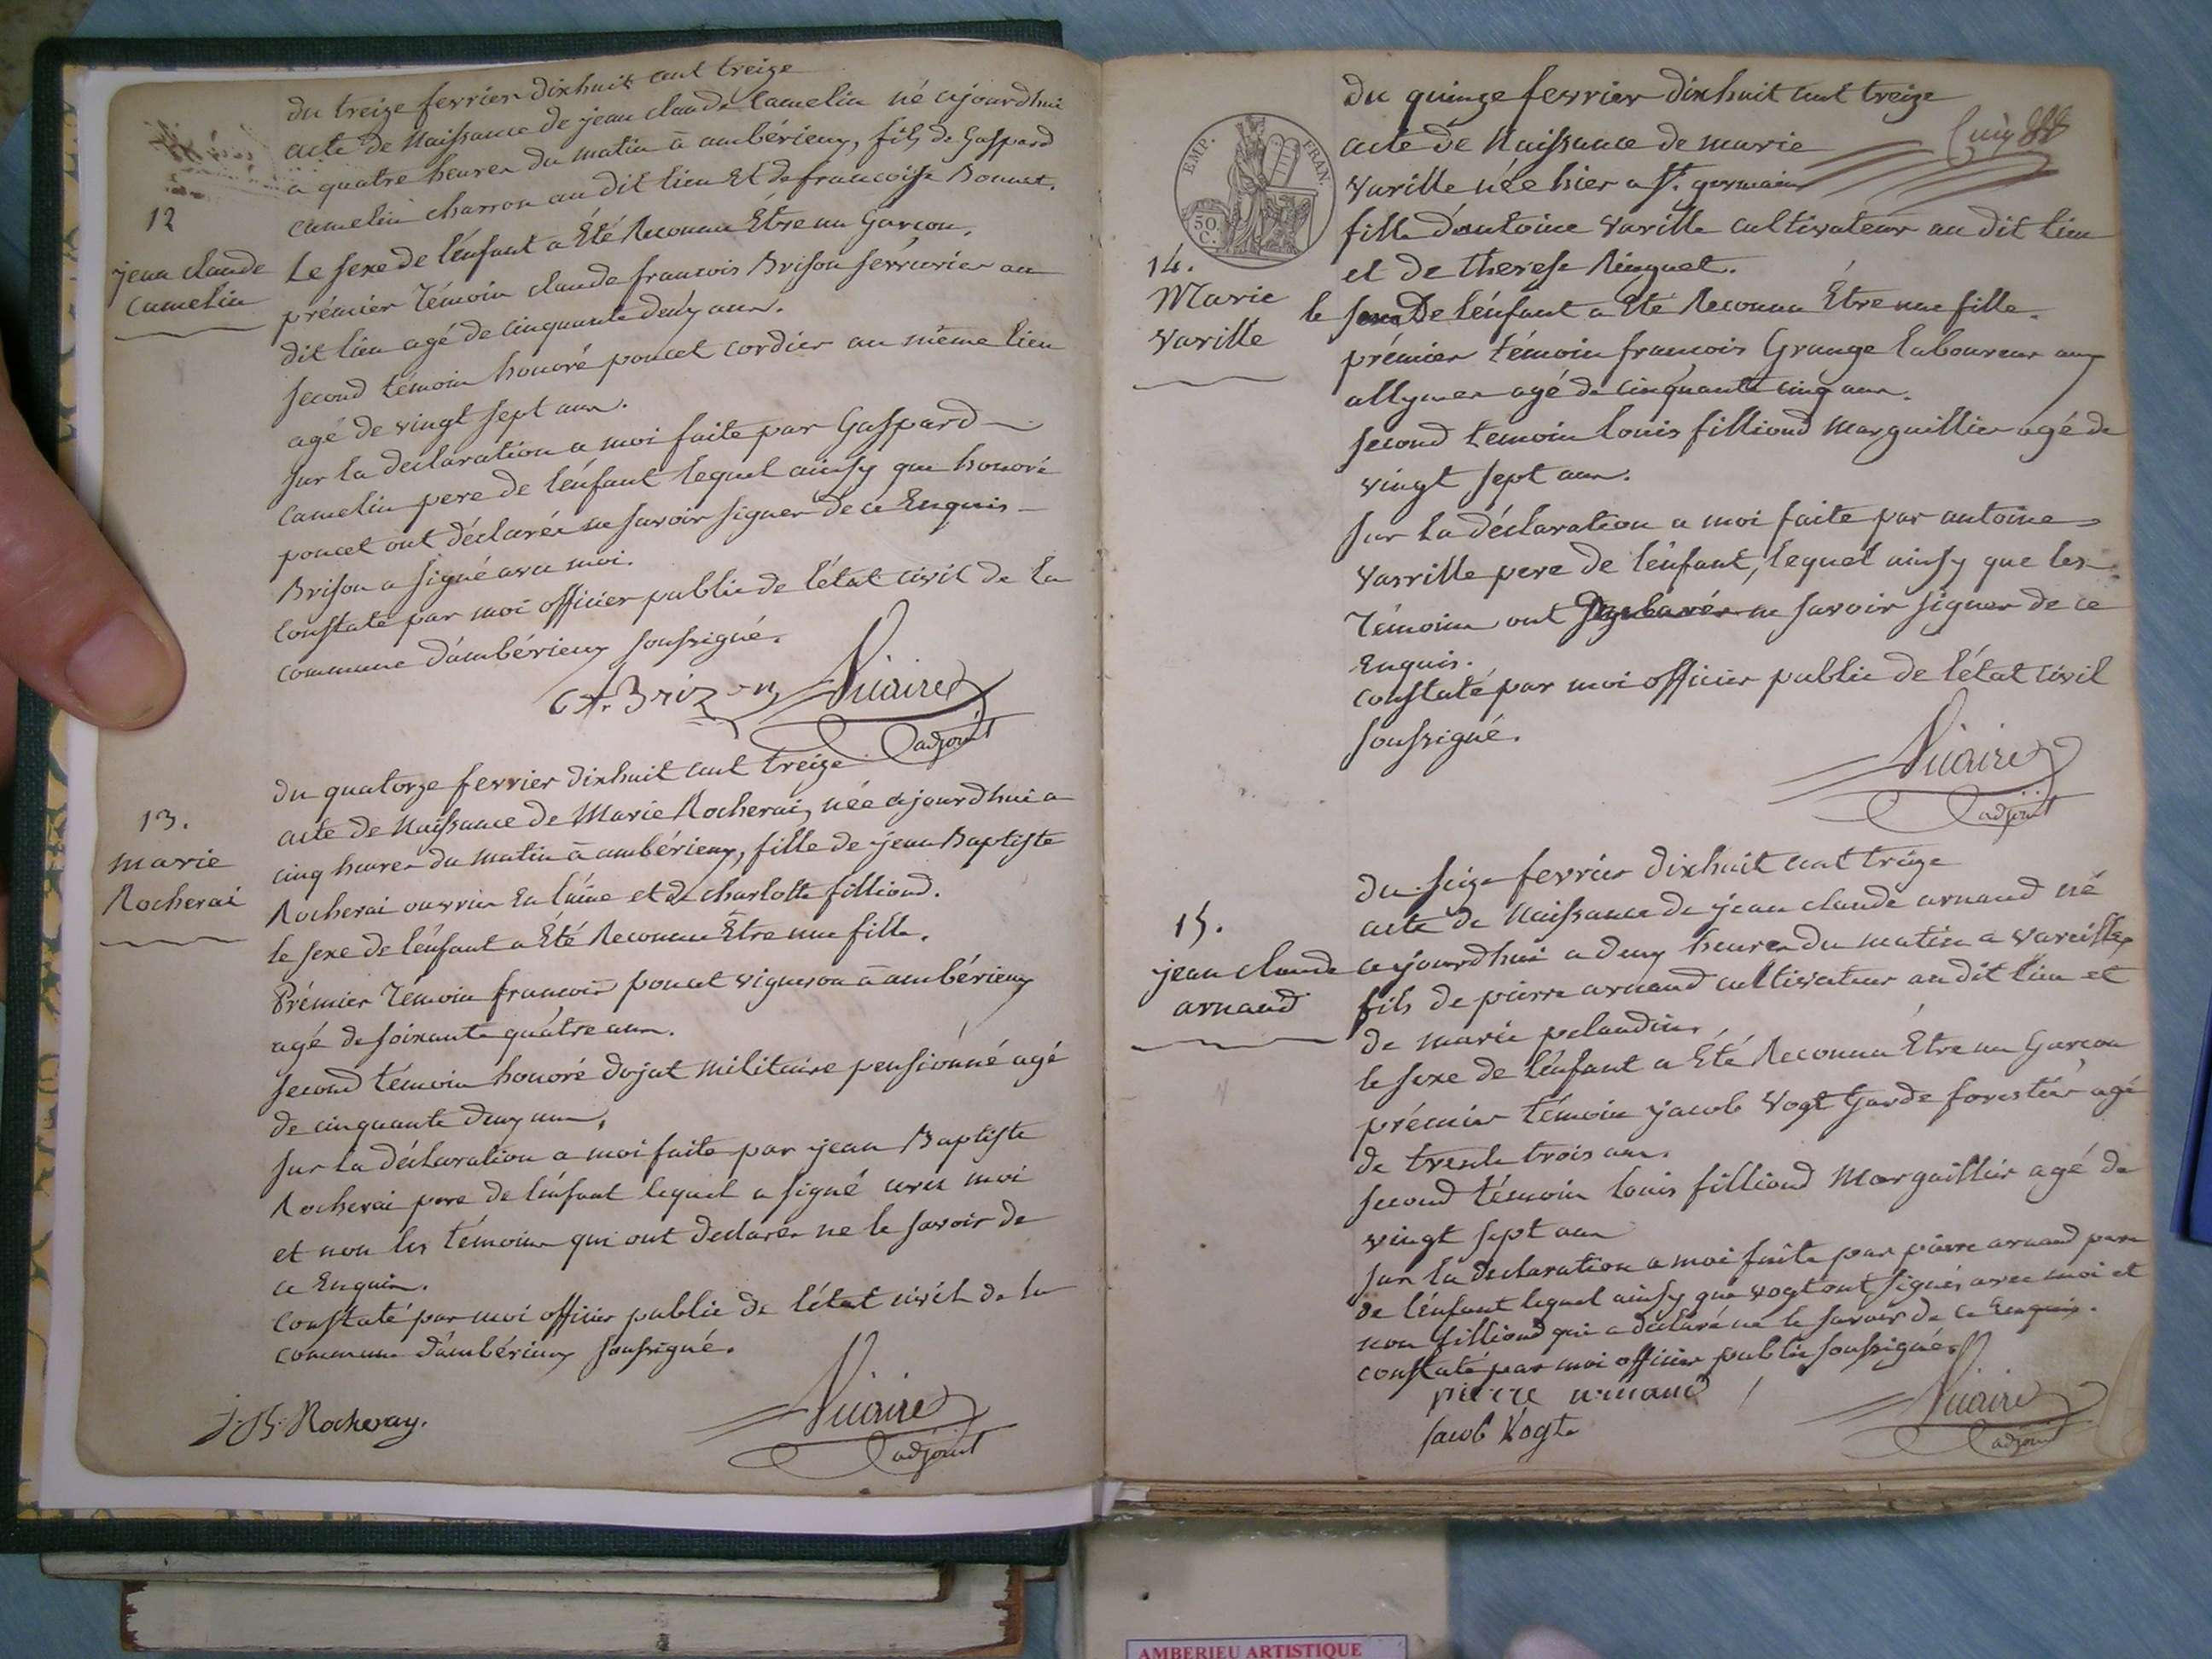 du treize fevrier dixhuit cent treize
acte de Naissance de jean claude Camelin né ajourdhui
a quatre heures du matin à ambérieux, fils de Gaspard
camelin charron au dit lieu et de francoise Bonnet.
Le sexe de l'énfant a Été Reconnu Étre un Garcon.
prémier Témoin claude francois Brison sérrurier au
dit lieu agé de cinquante deux ans.
second témoin honoré poncet cordier au même lieu
agé de vingt sept ans.
sur la declaration a moi faite par Gaspard
Camelin pere de l'énfant lequel ainsy que honoré
poncet ont déclarés ne savoir signer de ce Enquis
Brison a signé avec moi.
Constaté par moi officier public de l'état civil de la
commune d'ambérieux soussigné.
12
jean claude
Camelin
C.f. Brizon
Vicaire
adjoint
du quatorze fevrier dixhuit cent treize
acte de Naissance de Marie Rocherai, née ajourdhui a
cinq heures du matin à ambérieux, fille de jean Baptiste
Rocherai ouvrier En laine et de charlotte filliond.
le sexe de l'énfant a Été Reconnu Étre une fille.
Prémier Témoin francois poncet vigneron à ambérieux
agé de soixante quatre ans.
second témoin honoré dujat militaire pensionné agé
de cinquante deux ans.
sur la déclaration a moi faite par jean Baptiste
Rocherai pere de l'énfant lequel a signé avec moi
et non les témoins qui ont declarés ne le savoir de
ce Enquis.
Constaté par moi officier public de l'état civil de la
commune d'ambérieux soussigné.
13.
marie
Rocherai
J.B. Rocheray.
Vicaire
adjoint
du quinze fevrier dixhuit cent treize
acte de Naissance de marie
varille née hier a St. germain
fille d'antoine varille cultivateur au dit lieu
et de therese Ringuet.
le sexe De l'énfant a Eté Reconnu Être une fille.
prémier témoin francois Grange laboureur aux
allymes agé de cinquante cinq ans.
second temoin louis filliond marguillier agé de
vingt sept ans.
sur la déclaration a moi faite par antoine
varrille pere de l'énfant, lequel ainsy que les
Témoins ont Declarés ne savoir signer de ce
Enquis.
constaté par moi officier public de l'état civil
soussigné.
EMP. FRAN.
50
C.
14.
Marie
varille
Vicaire
adjoint
du seize fevrier dixhuit cent treize
acte de Naissance de jean claude arnaud né
ajourdhui a deux heures du matin a vareilles
fils de pierre arnaud cultivateur au dit lieu et
de marie pelaudin.
le sexe de l'énfant a Été Reconnu Étre un Garcon
prémier témoin jacob Vogt Garde forestier agé
de trente trois ans.
second témoin louis filliond Marguillier agé de
vingt sept ans
sur la declaration a moi faite par pierre arnaud pere
de l'énfant lequel ainsy que vogt ont signés avec moi et
non filliond qui a declaré ne le savoir de ce Enquis.
constaté par moi officier public soussigné.
15.
jean claude
arnaud
pierre arnaud
Jacob Vogt
Vicaire
adjoint
AMBERIEU ARTISTIQUE